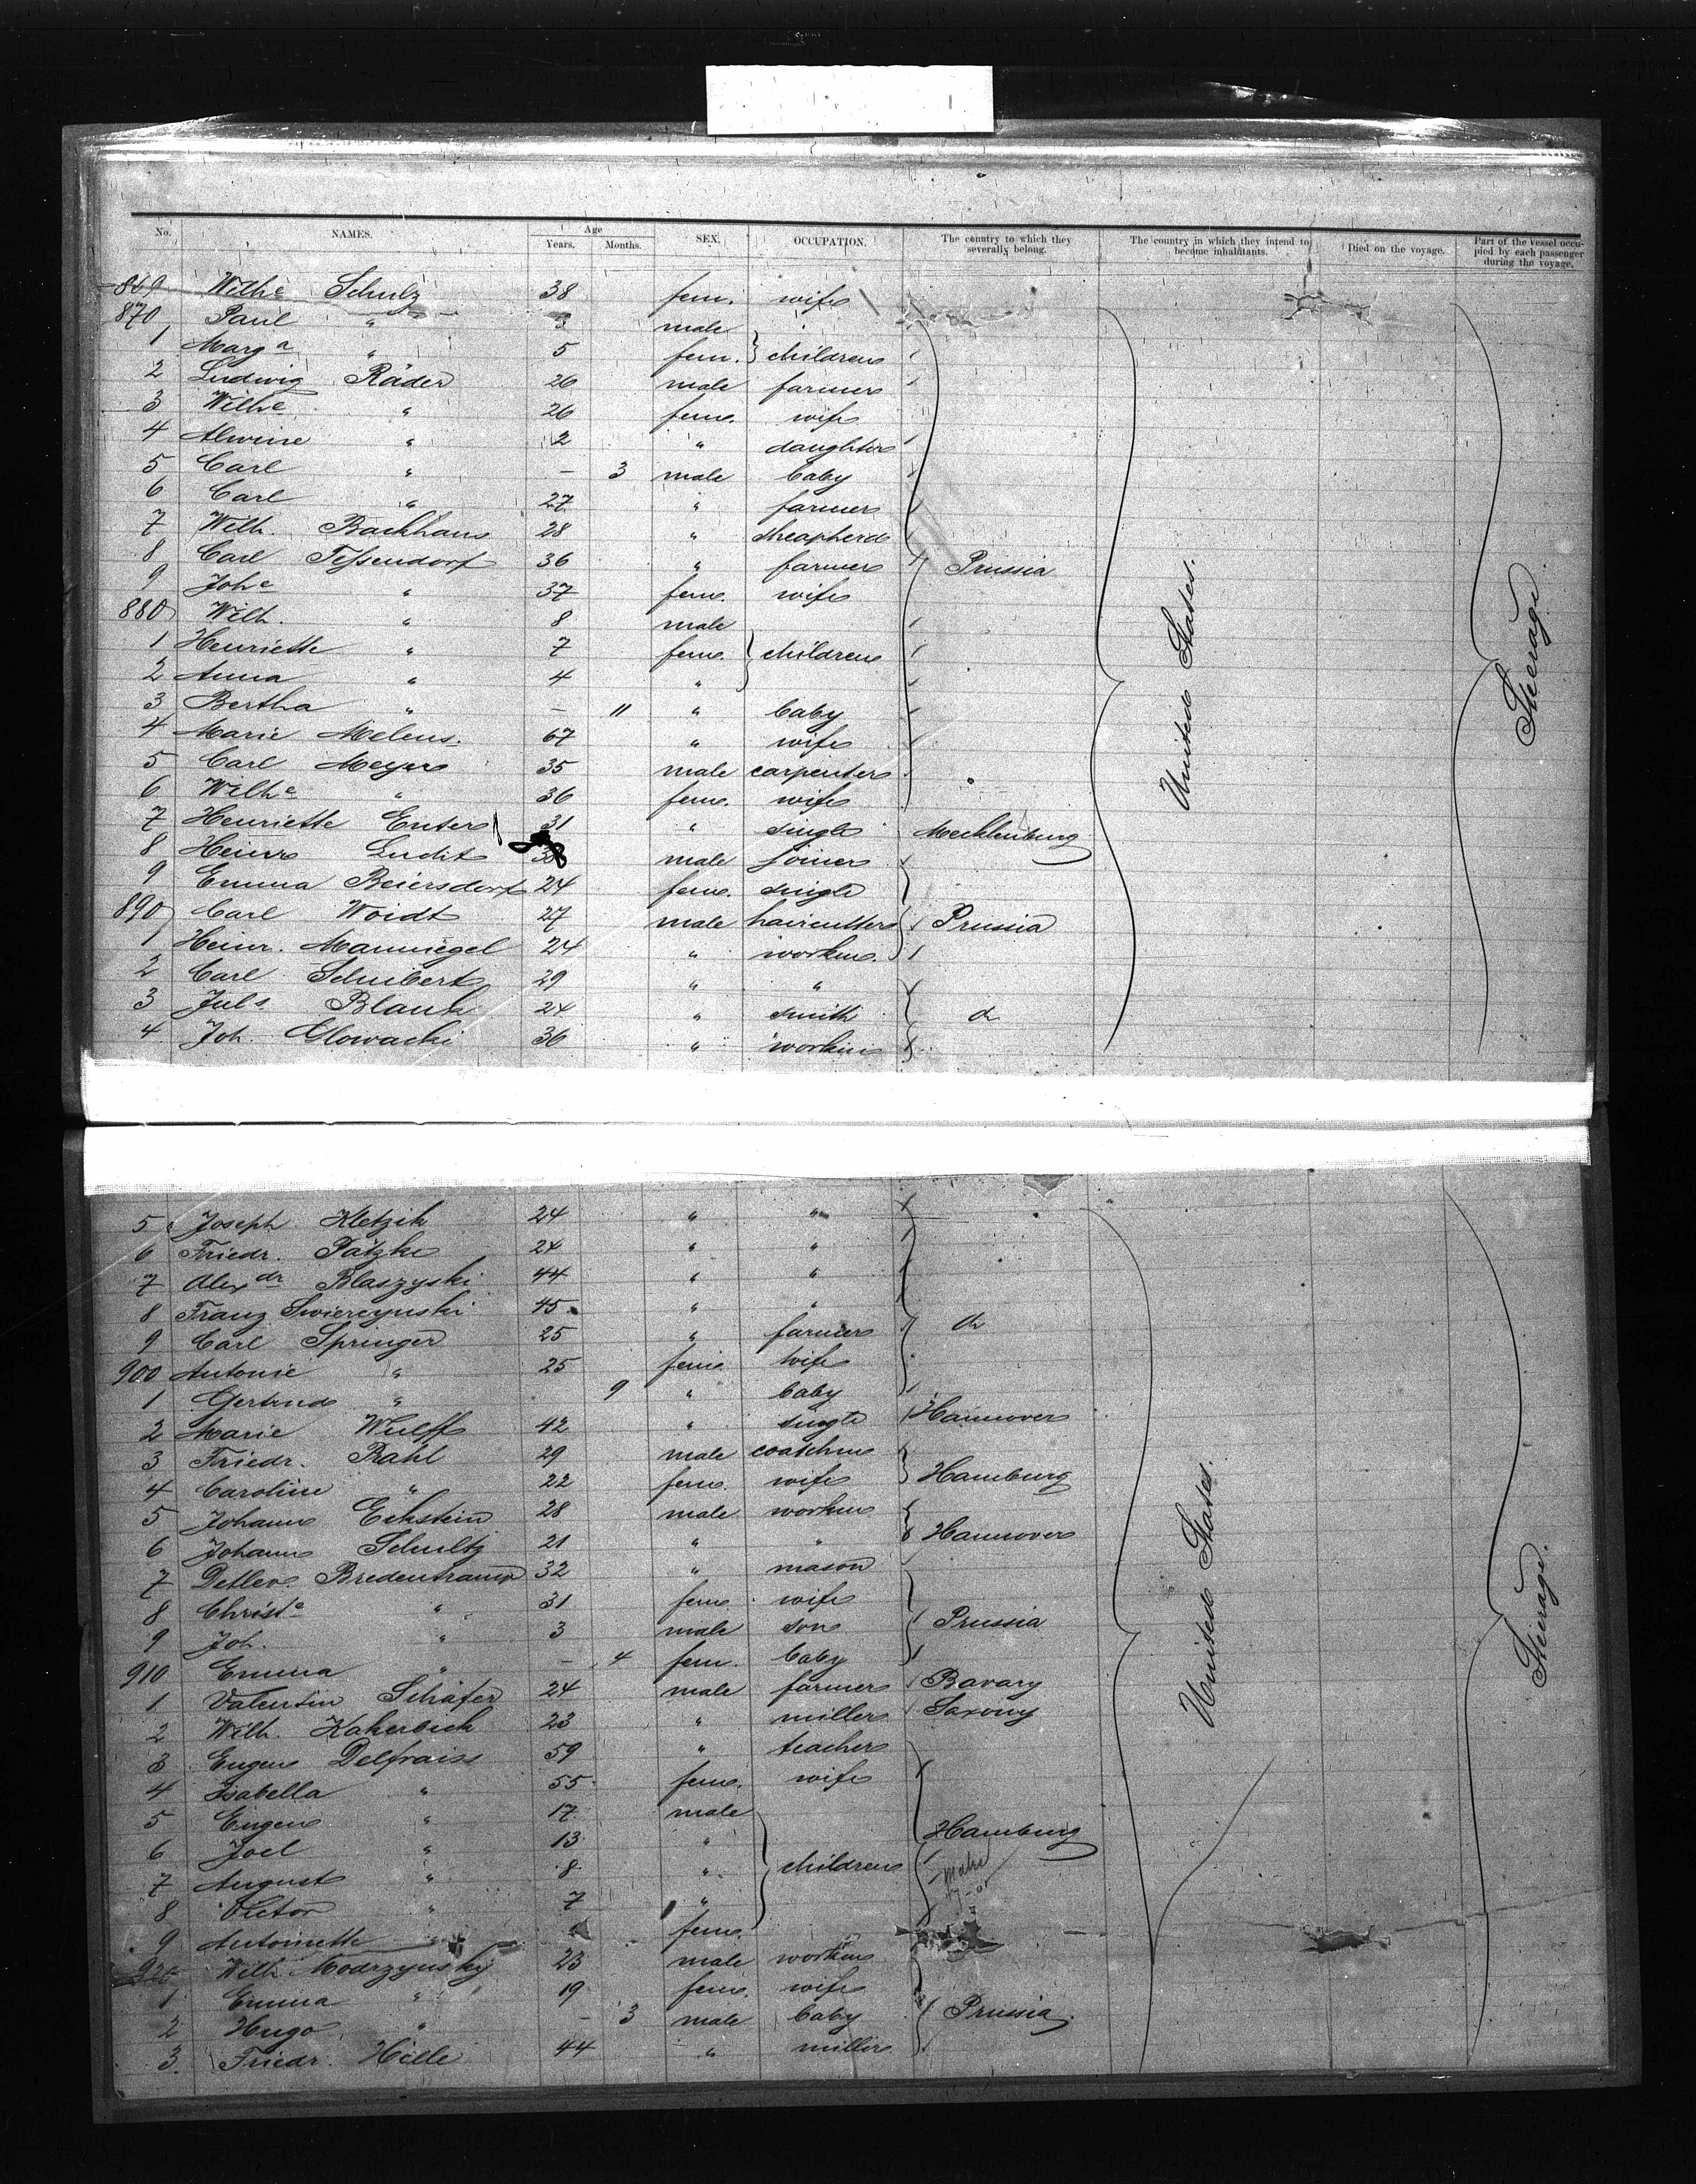 No. NAMES. Age Years. Months. SEX. OCCUPATION. The country to which they severally belong. The country in which they intend to become inhabitants. Died on the voyage. Part of the vessel occupied by each passenger during the voyage.
869 Wilhe Schulz 38 fem. wife
870 Paul " 3 male
1 Marga " 5 fem. } children
2 Ludwig Räder 26 male farmer
3 Wilhe " 26 fem. wife
4 Alwine " 2 " daughter
5 Carl " – 3 male baby
6 Carl " 27 " farmer
7 Wilh. Backhaus 28 " sheapherd
8 Carl Teßendorf 36 " farmer Prussia
9 Johe " 37 fem. wife
880 Wilh. " 8 male
1 Henriette " 7 fem. } children
2 Anna " 4 "
3 Bertha " – 11 " baby
4 Marie Melens. 67 " wife
5 Carl Meyer 35 male carpenter "
6 Wilhe " 36 fem. wife
United States. Steerage.
7 Henriette Enters 31 " single Mecklenburg
8 Heinr Ludit 38 male joiner
9 Emma Beiersdorf 24 fem. single
890 Carl Woidt 27 male haircutter Prussia
1 Heinr. Mannegel 24 " workm.
2 Carl Schubert 29 " "
3 Juls. Blank 24 " smith do
4 Joh. Glowacki 36 " workm
5 Joseph Kletzik 24 " " "
6 Friedr. Patzke 24 " "
7 Alexdr Blaszyski 44 " "
8 Franz Swiercynski 45 " "
9 Carl Springer 25 " farmer do
900 Antonie " 25 fem wife
1 Gertrud " 9 " baby
2 Marie Wulff 42 " single Hannover
3 Friedr. Rahl 29 male coachm
4 Caroline " 22 fem. wife Hamburg
5 Johann Eckstein 28 male workm
6 Johann Schultz 21 " " Hannover
7 Detlev. Bredentramp 32 " mason
8 Christe " 31 fem wife
9 Joh. " 3 male son Prussia
910 Emma " – 4 fem. baby
1 Valentin Schäfer 24 male farmer Bavary
2 Wilh. Kakerbick 23 " miller Saxony
3 Eugen Delfraiss 59 " teacher
4 Isabella " 55 fem. wife
5 Eugen " 17 male
6 Joel " 13 " Hamburg
7 August " 8 " } children
8 Victor " 7 "
9 Antoineth fem.
United States. Steerage.
920 Wilh. Modrzynsky 23 male workm
1 Emma " 19 fem. wife
2 Hugo " – 3 male baby Prussia
3. Friedr. Hölle 44 " miller